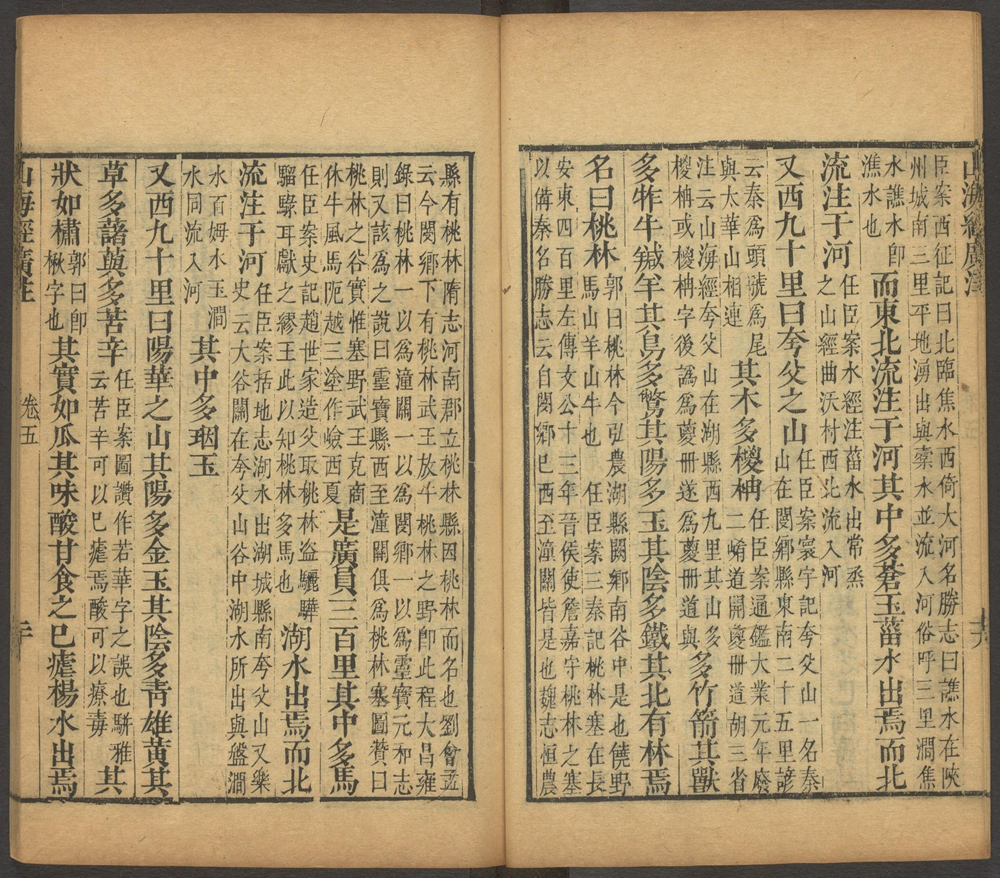 山海經廣注
十六
臣案西征記曰北臨焦水西倚大河名勝志曰譙水在陝
州城南三里平地湧出與槖水並流入河俗呼三里澗焦
水譙水卽潐水也而東北流注于河其中多蒼玉菑水出焉而北
流注于河任臣案水經注菑水出常烝之山經曲沃村西北流入河
又西九十里曰夸父之山任臣案寰宇記夸父山一名秦山在閿鄉縣東南二十五里諺
云秦爲頭虢爲尾與太華山相連其木多椶枏任臣案通鑑大業元年廢二崤道開葼冊道胡三省
注云山海經夸父山在湖縣西九里其山多椶枏或椶柟字後譌爲葼冊遂爲葼冊道與多竹箭其獸
多㸲牛羬羊其鳥多鷩其陽多玉其陰多鐵其北有林焉
名曰桃林郭曰桃林今弘農湖縣閿鄉南谷中是也饒野馬山羊山牛也 任臣案三秦記桃林塞在長
安東四百里左傳文公十三年晉侯使詹嘉守桃林之塞
以備秦名勝志云自閿鄉已西至潼關皆是也魏志恒農
縣有桃林隋志河南郡立桃林縣因桃林而名也劉會孟
云今閿鄉下有桃林武王放牛桃林之野卽此程大昌雍
錄曰桃林一以爲潼關一以爲閿鄉一以爲靈寶元和志
則又該爲之說曰靈寶縣西至潼關俱爲桃林塞圖贊曰
桃林之谷實惟塞野武王克商休牛風馬阨越三塗作嶮西夏是廣員三百里其中多馬
任臣案史記趙世家造父取桃林盗驪驊騮騄耳獻之繆王此以知桃林多馬也湖水出焉而北
流注于河任臣案括地志湖水出湖城縣南夸父山又樂史云大谷關在夸父山谷中湖水所出與盤澗
水百姆水玉澗水同流入河其中多珚玉
又西九十里曰陽華之山其陽多金玉其陰多青雄黃其
草多藷藇多苦辛任臣案圖讚作若華字之誤也駢雅云苦辛可以已瘧焉酸可以療毒其
狀如橚郭曰卽楸字也其實如瓜其味酸甘食之已瘧楊水出焉
山海經廣注
卷五